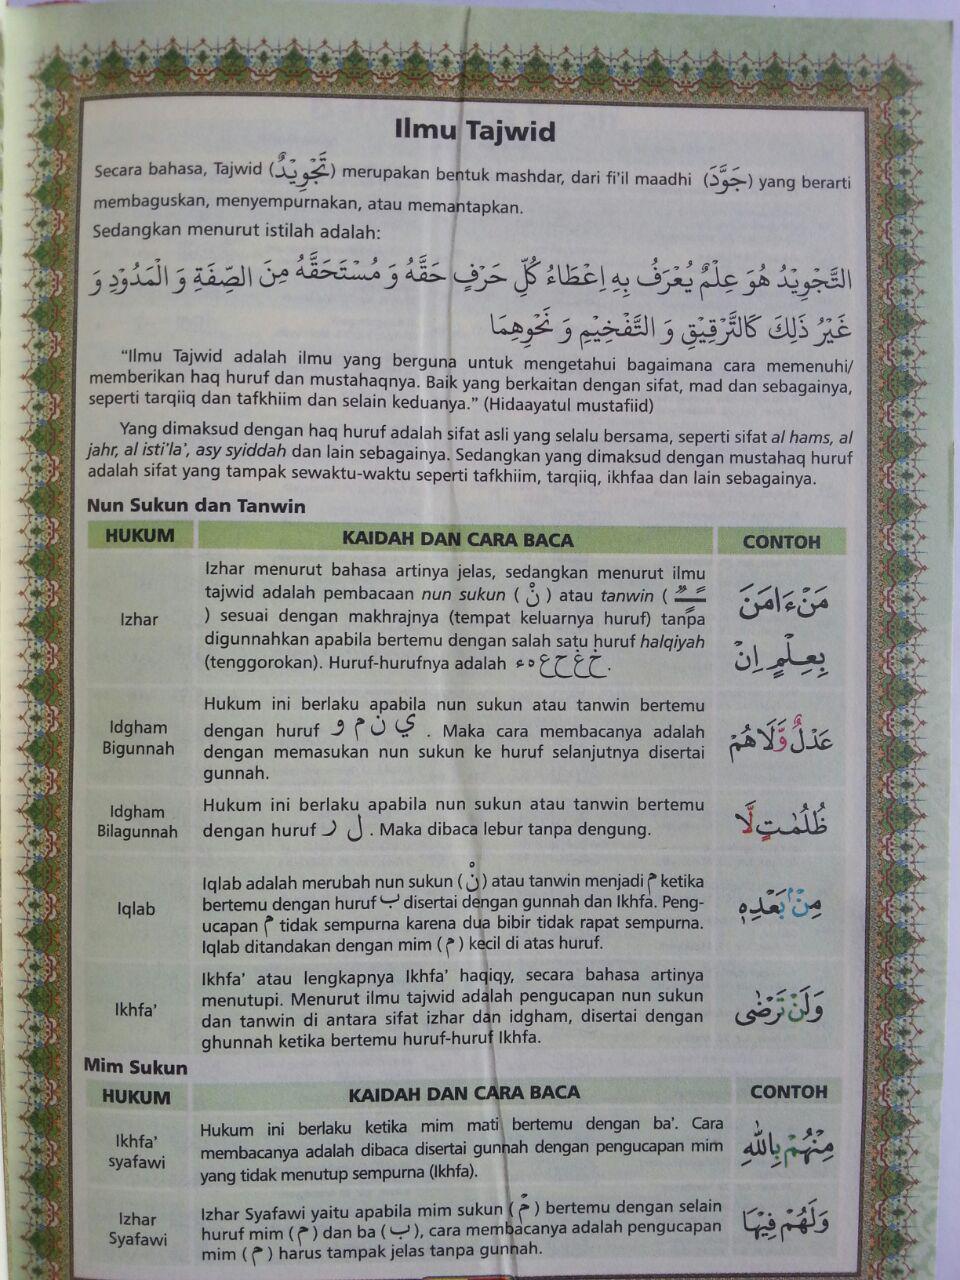 Ilmu Tajwid
Secara bahasa, Tajwid (تَجْوِيْدٌ) merupakan bentuk mashdar, dari fi'il maadhi (جَوَّدَ) yang berarti
membaguskan, menyempurnakan, atau memantapkan.
Sedangkan menurut istilah adalah:
التَّجْوِيْدُ هُوَ عِلْمٌ يُعْرَفُ بِهِ اِعْطَاءُ كُلِّ حَرْفٍ حَقَّهُ وَ مُسْتَحَقَّهُ مِنَ الصِّفَةِ وَ الْمَدُوْدِ وَ
غَيْرُ ذَلِكَ كَالتَّرْقِيْقِ وَ التَّفْخِيْمِ وَ نَحْوِهِمَا
“Ilmu Tajwid adalah ilmu yang berguna untuk mengetahui bagaimana cara memenuhi/
memberikan haq huruf dan mustahaqnya. Baik yang berkaitan dengan sifat, mad dan sebagainya,
seperti tarqiiq dan tafkhiim dan selain keduanya.” (Hidaayatul mustafiid)
Yang dimaksud dengan haq huruf adalah sifat asli yang selalu bersama, seperti sifat al hams, al
jahr, al isti'la', asy syiddah dan lain sebagainya. Sedangkan yang dimaksud dengan mustahaq huruf
adalah sifat yang tampak sewaktu-waktu seperti tafkhiim, tarqiiq, ikhfaa dan lain sebagainya.
Nun Sukun dan Tanwin
HUKUM KAIDAH DAN CARA BACA CONTOH
Izhar
Izhar menurut bahasa artinya jelas, sedangkan menurut ilmu
tajwid adalah pembacaan nun sukun ( نْ ) atau tanwin ( ـًـٍـٌ
) sesuai dengan makhrajnya (tempat keluarnya huruf) tanpa
digunnahkan apabila bertemu dengan salah satu huruf halqiyah
(tenggorokan). Huruf-hurufnya adalah خ غ ح ع ه ء.
مَنْ ءَامَنَ
بِعِلْمٍ اِنْ
Idgham
Bigunnah
Hukum ini berlaku apabila nun sukun atau tanwin bertemu
dengan huruf ي ن م و . Maka cara membacanya adalah
dengan memasukan nun sukun ke huruf selanjutnya disertai
gunnah.
عَدْلٌ وَّلَاهُمْ
Idgham
Bilagunnah
Hukum ini berlaku apabila nun sukun atau tanwin bertemu
dengan huruf ل ر . Maka dibaca lebur tanpa dengung.
ظُلُمٰتٍ لَّا
Iqlab
Iqlab adalah merubah nun sukun ( نْ ) atau tanwin menjadi م ketika
bertemu dengan huruf ب disertai dengan gunnah dan Ikhfa. Peng-
ucapan م tidak sempurna karena dua bibir tidak rapat sempurna.
Iqlab ditandakan dengan mim ( م ) kecil di atas huruf.
مِنْۢ بَعْدِهٖ
Ikhfa'
Ikhfa' atau lengkapnya Ikhfa' haqiqy, secara bahasa artinya
menutupi. Menurut ilmu tajwid adalah pengucapan nun sukun
dan tanwin di antara sifat izhar dan idgham, disertai dengan
ghunnah ketika bertemu huruf-huruf Ikhfa.
وَلَنْ تَرْضٰى
Mim Sukun
HUKUM KAIDAH DAN CARA BACA CONTOH
Ikhfa'
syafawi
Hukum ini berlaku ketika mim mati bertemu dengan ba'. Cara
membacanya adalah dibaca disertai gunnah dengan pengucapan mim
yang tidak menutup sempurna (Ikhfa).
مِنْهُمْ بِاللّٰهِ
Izhar
Syafawi
Izhar Syafawi yaitu apabila mim sukun ( مْ ) bertemu dengan selain
huruf mim ( م ) dan ba ( ب ), cara membacanya adalah pengucapan
mim ( م ) harus tampak jelas tanpa gunnah.
وَلَهُمْ فِيْهَا